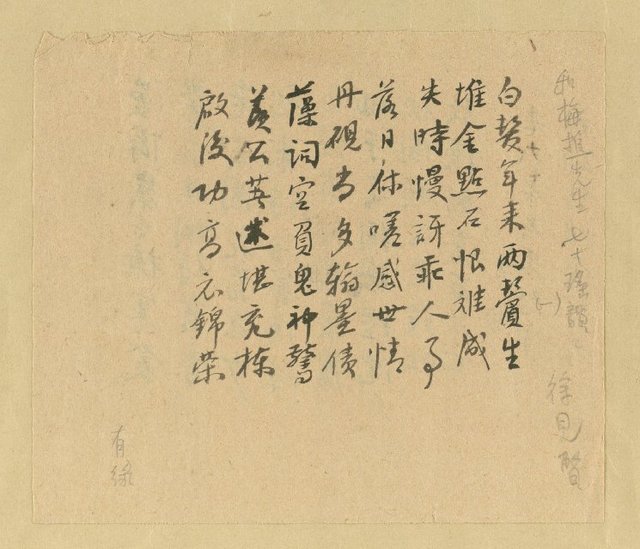 和梅樵先生七十瑤韻
(一)
徐見賢
白髮年來兩鬢生
堆金點石恨難成
失時慢訝乖人事
落日休嗟感世情
丹硯尚多翰墨債
藻詞空負鬼神驚
羨公英述堪充棟
啟後功高衣錦榮
有錄